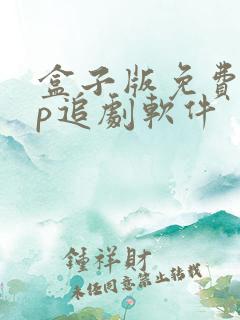 盒子版免費
p追劇軟件
鍾祥財
未经同意禁止转载